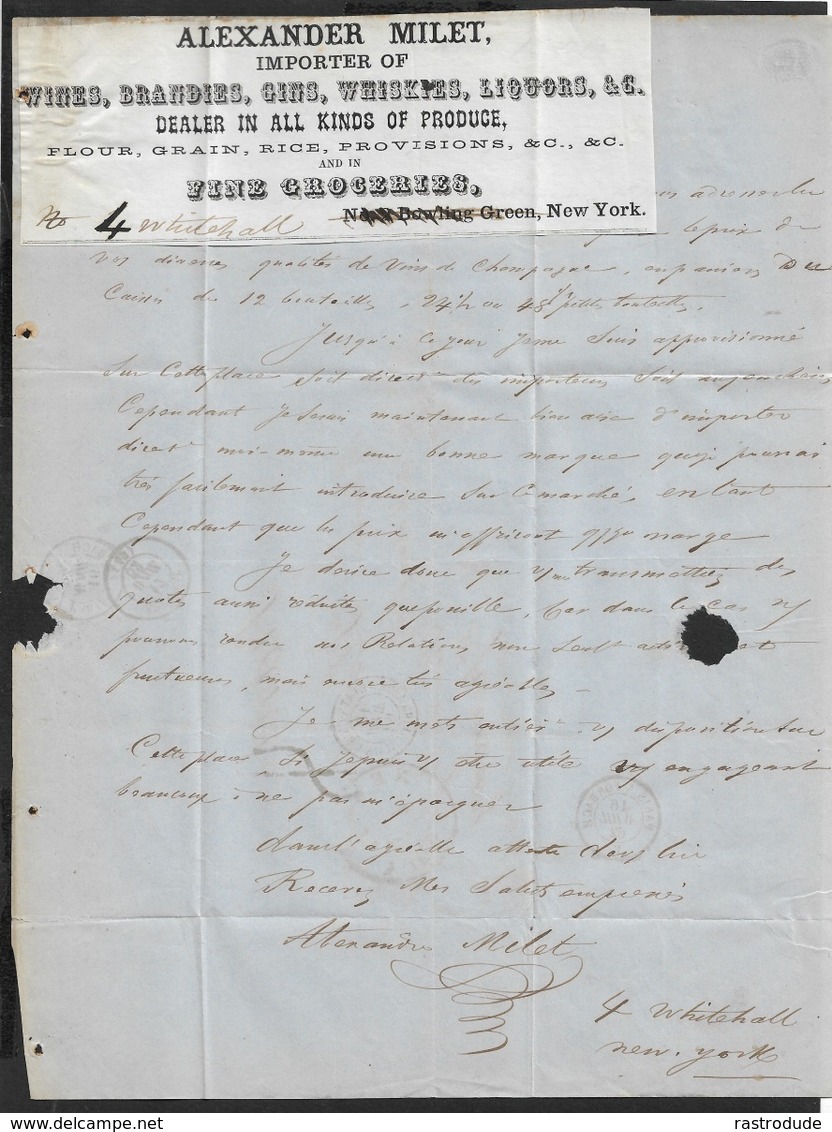 ALEXANDER MILET,
IMPORTER OF
WINES, BRANDIES, GINS, WHISKIES, LIQUORS, &C.
DEALER IN ALL KINDS OF PRODUCE,
FLOUR, GRAIN, RICE, PROVISIONS, &C., &C.
AND IN
FINE GROCERIES,
No 4 Whitehall Bowling Green, New York.
le prix de
vos diverses qualités de Vins de Champagne, en paniers ou
Caisses de 12 bouteilles, 24/2 ou 48/ petites bouteilles.
Jusqu'à ce jour je me suis approvisionné
sur cette place soit direct des importeurs soit aux enchères
Cependant je serais maintenant bien aise d'importer
direct moi-même une bonne marque que je pourrais
très facilement introduire sur le marché, en tant
Cependant que les prix m'offriront marge
Je désire donc que transmettiez des
quotes aussi réduites que possible, Car dans le cas
pourrons rendre nos Relations non seul et
fructueuses, mais encore très agréables.
Je me mets entier disposition sur
Cette place si je puis être utile engageant
beaucoup à ne pas m'épargner
dans l'agréable attente d vous lire
Recevez Mes Saluts empressés
Alexandre Milet
4 Whitehall
new. york
rastrodude